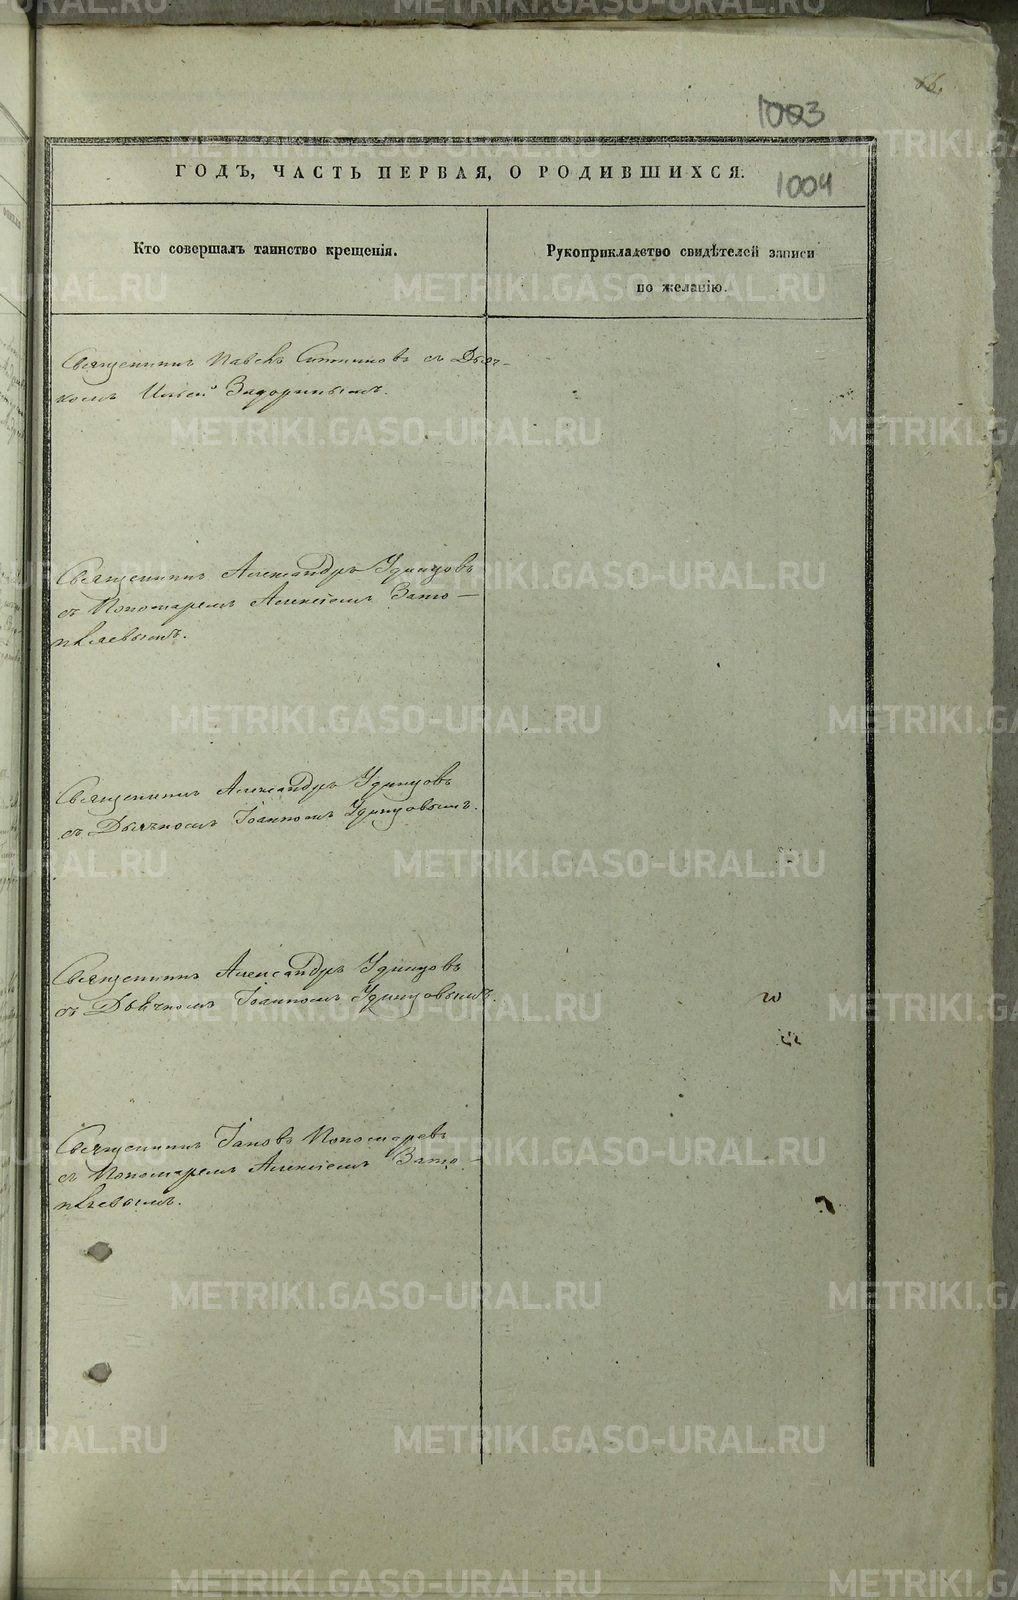 66.
1003
ГОДЪ, ЧАСТЬ ПЕРВАЯ, О РОДИВШИХСЯ.
1004
Кто совершалъ таинство крещенія.
Рукоприкладство свидѣтелей записи
по желанію.
Священникъ Павелъ Ситниковъ съ Дьяч-
комъ Ильей Задоринымъ.
Священникъ Александръ Удинцовъ
съ Пономаремъ Алексіемъ Запо-
Священникъ Александръ Удинцовъ
съ Дьячкомъ Іоанномъ Удинцовымъ.
Священникъ Александръ Удинцовъ
съ Дьячкомъ Іоанномъ Удинцовымъ.
Священникъ Іаковъ Пономаревъ
съ Пономаремъ Алексіемъ
METRIKI.GASO-URAL.RU